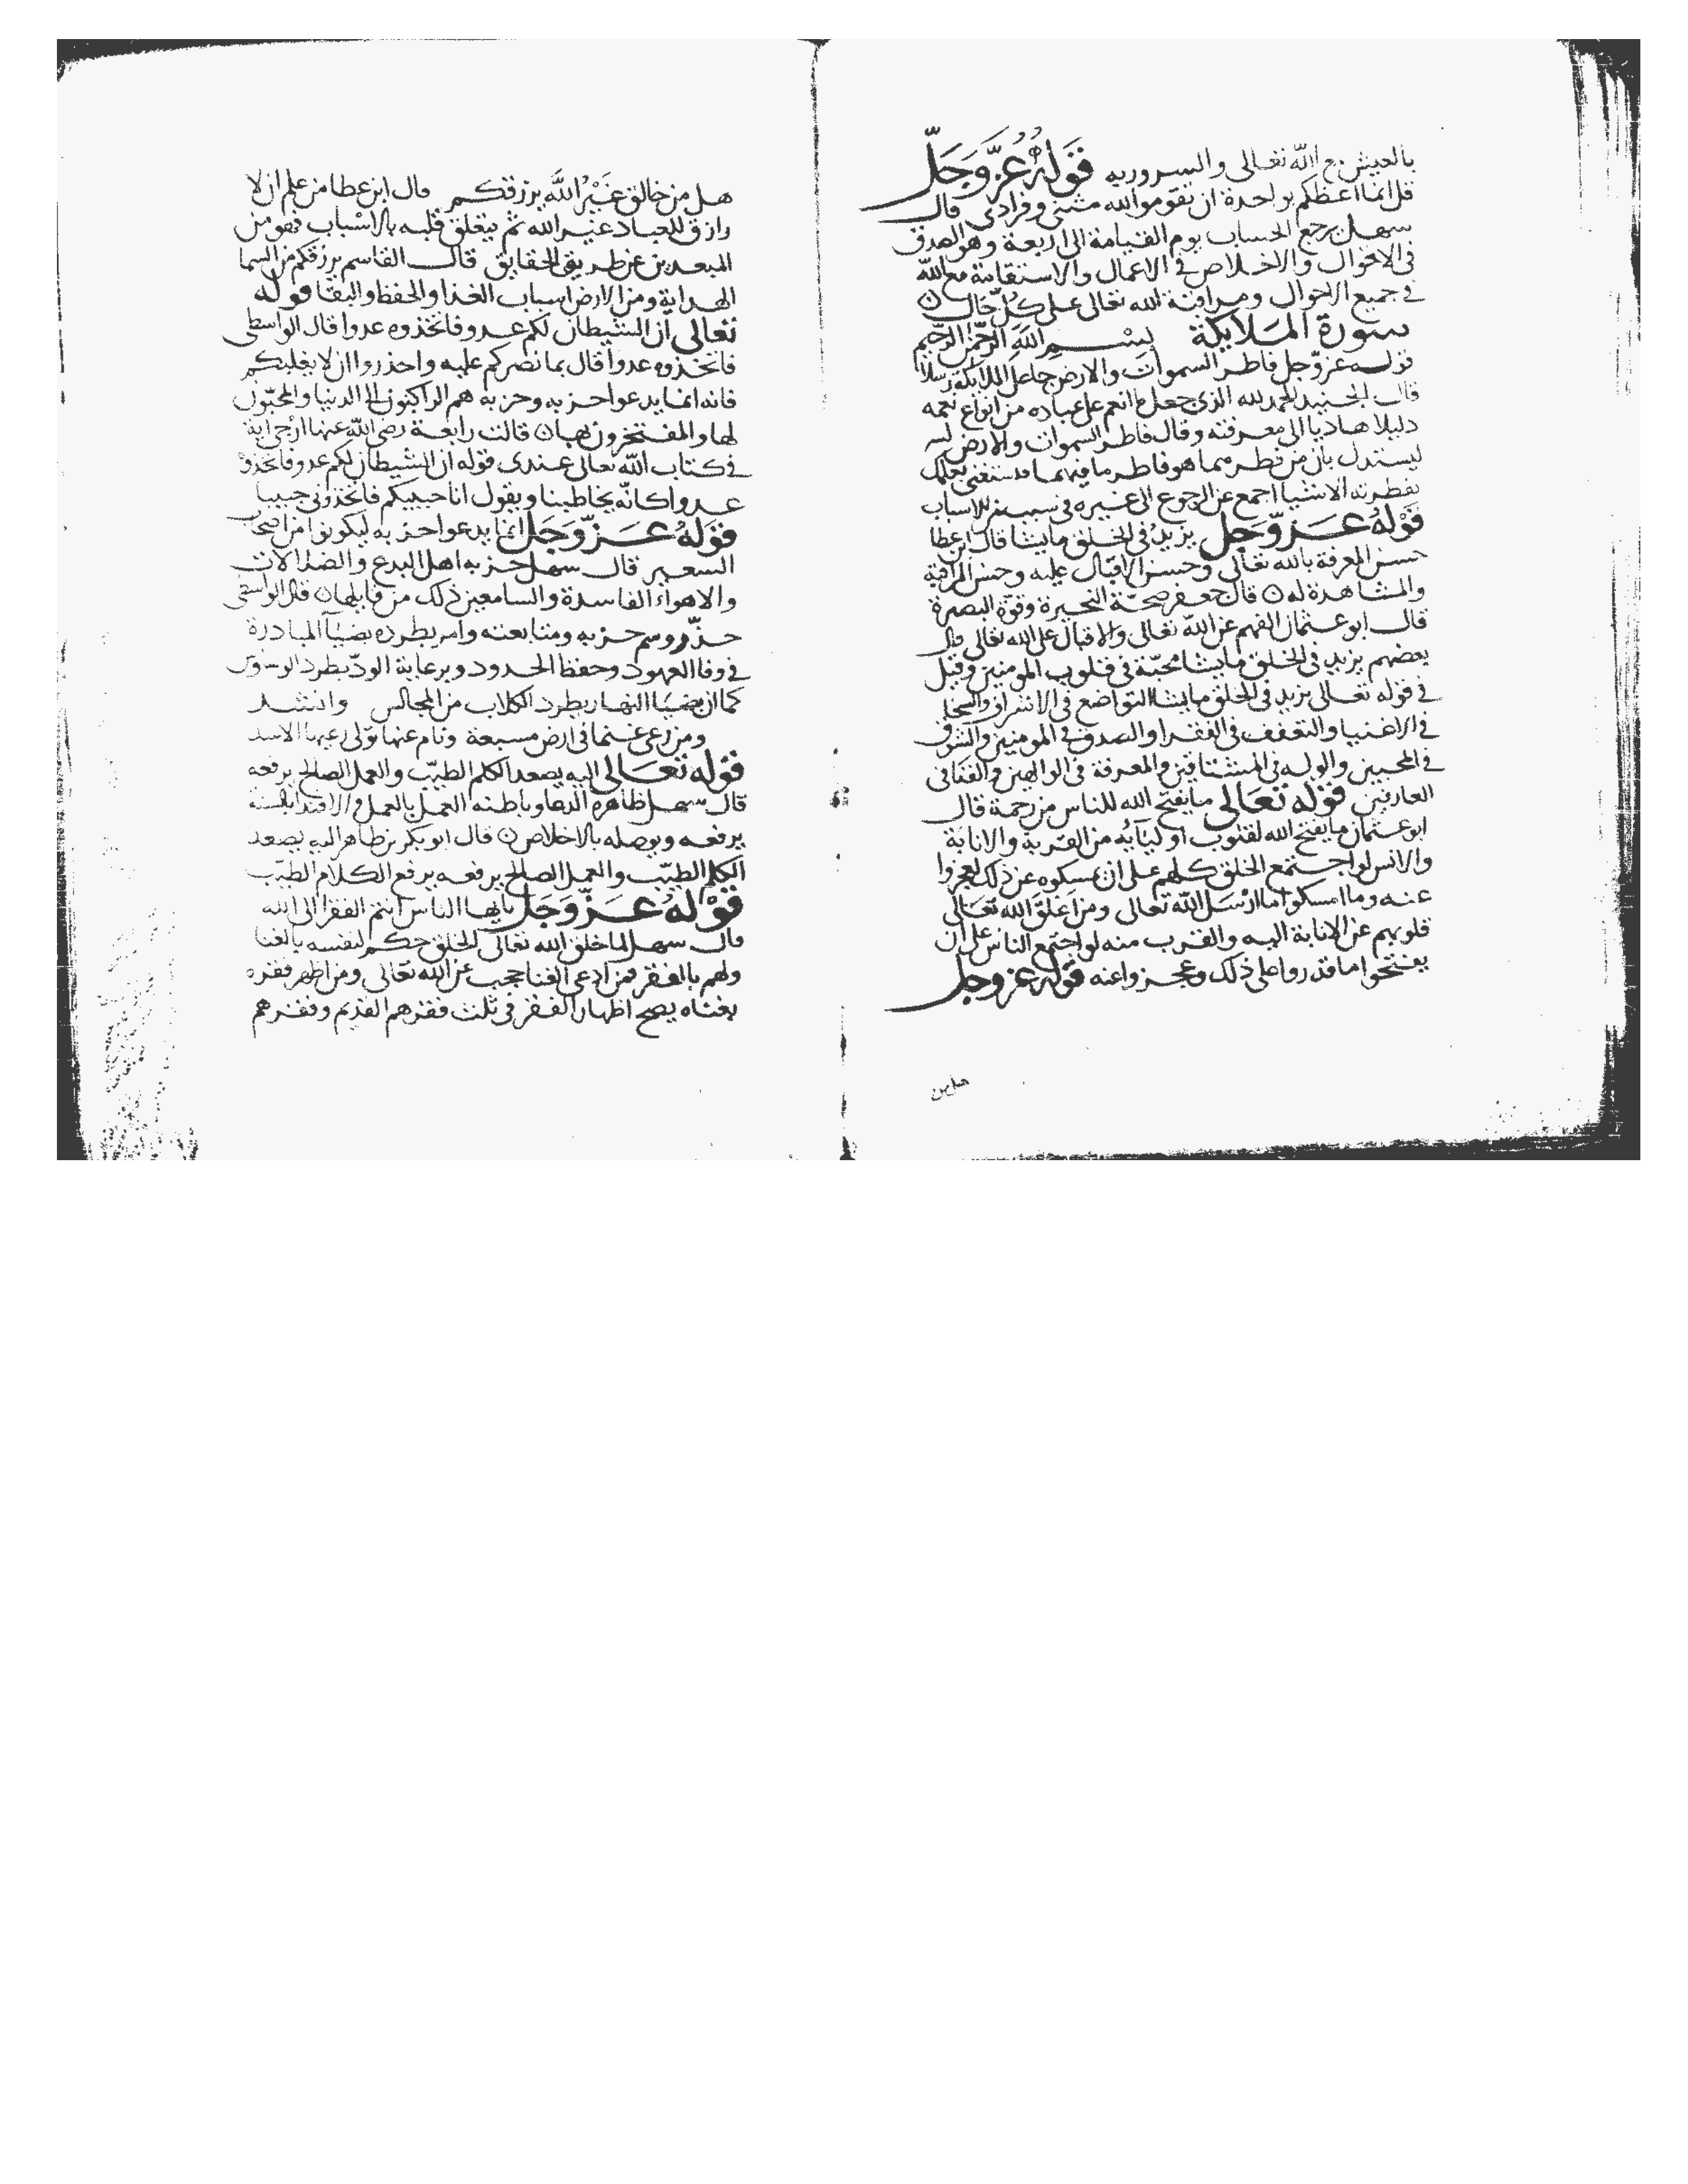 بالعيش مع الله تعالى والسرور به قَوْلهُ عَزَّ وَجَلّ
قل انما اعظكم بواحدة ان تقوموا لله مثنى وفرادى قال
سهل يرجع الحساب يوم القيامة الى اربعة وهو الصدق
فى الاقوال والاخلاص فى الاعمال والاستقامة مع الله
فى جميع الاحوال ومراقبة الله تعالى على كُلّ حَالٍ
سورة الملايكة بِسْمِ اللهِ الرَّحْمٰنِ الرَّحِيْمِ
قوله عزّ وجل فاطر السموات والارض جاعل الملايكة رسلا
قال الجنيد الحمد لله الذى جعل ما انعم على عباده من انواع نعمه
دليلا هاديا الى معرفته وقال فاطر السموات والارض
ليستدل بان من فطرهما هو فاطر ما فيهما
بفطرته الاشيا اجمع عن الرجوع الى غيره فى سبب من الاسباب
قَوْلهُ عَزّ وَجَل يزيدُ فى الخلق ما يشا قال ابن عطا
حسن المعرفة بالله تعالى وحسن الاقبال عليه وحسن المراقبة
والمشاهدة له ن قال جعفر صحّة النحيزة وقوّة البصيرة
قال ابو عثمان الفهم عن الله تعالى والاقبال على الله تعالى وقال
بعضهم يزيد فى الخلق ما يشا محبّة فى قلوب المومنين وقيل
فى قوله تعالى يزيد فى الخلق ما يشا التواضع فى الاشراف والسخا
فى الاغنيا والتعفف فى الفقرا والصدق فى المومنين والشوق
فى المحبين والوله فى المشتاقين والمعرفة فى الوالهين والفنا فى
العارفين قوله تعَالى ما يفتح الله للناس من رحمة قال
ابو عثمان ما يفتح الله لقلوب اوليَايه من القربة والانابة
والانس لو اجتمع الخلق كلهم على ان يمسكوه عن ذلك لعجزوا
عنه وما امسكوا ما ارْسَل الله تعالى ومن اغلق الله تعَالى
قلوبهم عن الانابة اليه والقرب منه لو اجتمع الناس على ان
يفتحوا ما قدروا على ذلك وعجزوا عنه قوله عز وجل
هل من
هل من خالق غَيْرُ اللهِ يرزقكم قال ابن عطا من علم ان لا
رازق للعباد غير الله ثم يتعلق قلبه بالاسْباب فهو من
المبعدين عن طريق الحقايق قال القاسم يرزقكم من السما
الهداية ومن الارض اسباب الغذا والحفظ والبقا قوله
تعالى ان الشيطان لكم عدو فاتخذوه عدوا قال الواسطى
فاتخذوه عدوا قال بما نصركم عليه واحذروا ان لا يغلبكم
فانه انما يدعوا حزبه وحزبه هم الراكنون الى الدنيا والمحبّون
لها والمفتخرون بها ن قالت رابعة رضى الله عنها ارْجى اية
فى كتاب الله تعالى عندى قوله ان الشيطان لكم عدو فاتخذوه
عدوا كانّه يخاطبنا ويقول انا حبيبكم فاتخذونى حبيبا
قَوْلهُ عَزّ وَجَل انما يدعوا حزبه ليكونوا من اصحاب
السعير قال سهل حزبه اهل البدع والضلالات
والاهواء الفاسدة والسامعين ذلك من قايلها ن قال الواسطى
حذّروهم حزبه ومتابعته وامر بطرده بضيَآ المبادرة
فى وفا العهود وحفظ الحدود وبرعاية الودّ يطرد الوسواس
كما ان بضيَا النهار يطرد الكلاب من المجالس وانشد
ومن رعى غنما فى ارض مسبعة ونام عنها تولى رعيها الاسد
قوله تعَالى اليه يصعد الكلم الطيّب والعمل الصالح يرفعه
قال سهل ظاهره الدعا وباطنه العمل بالعمل والاقتدا بالسنة
يرفعه ويوصله بالاخلاص ن قال ابو بكر بن طاهر اليه يصعد
الكلم الطيّب والعمل الصالح يرفعه يرفع الكلام الطيّب
قَوْلهُ عَزّ وَجَل يايها الناس انتم الفقرا الى الله
قال سهل لما خلق الله تعالى الخلق حكم لنفسه بالغنا
ولهم بالفقر فمن ادعى الغنا حجب عن الله تعالى ومن اظهر فقره
بغناه يصح اظهار الفقر فى ثلث فقرهم القديم وفقرهم